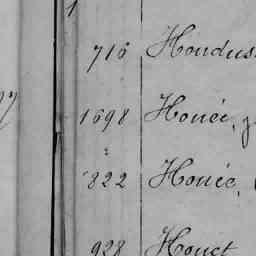 716 Houdus
1698 Houée,
822 Houée,
928 Houet